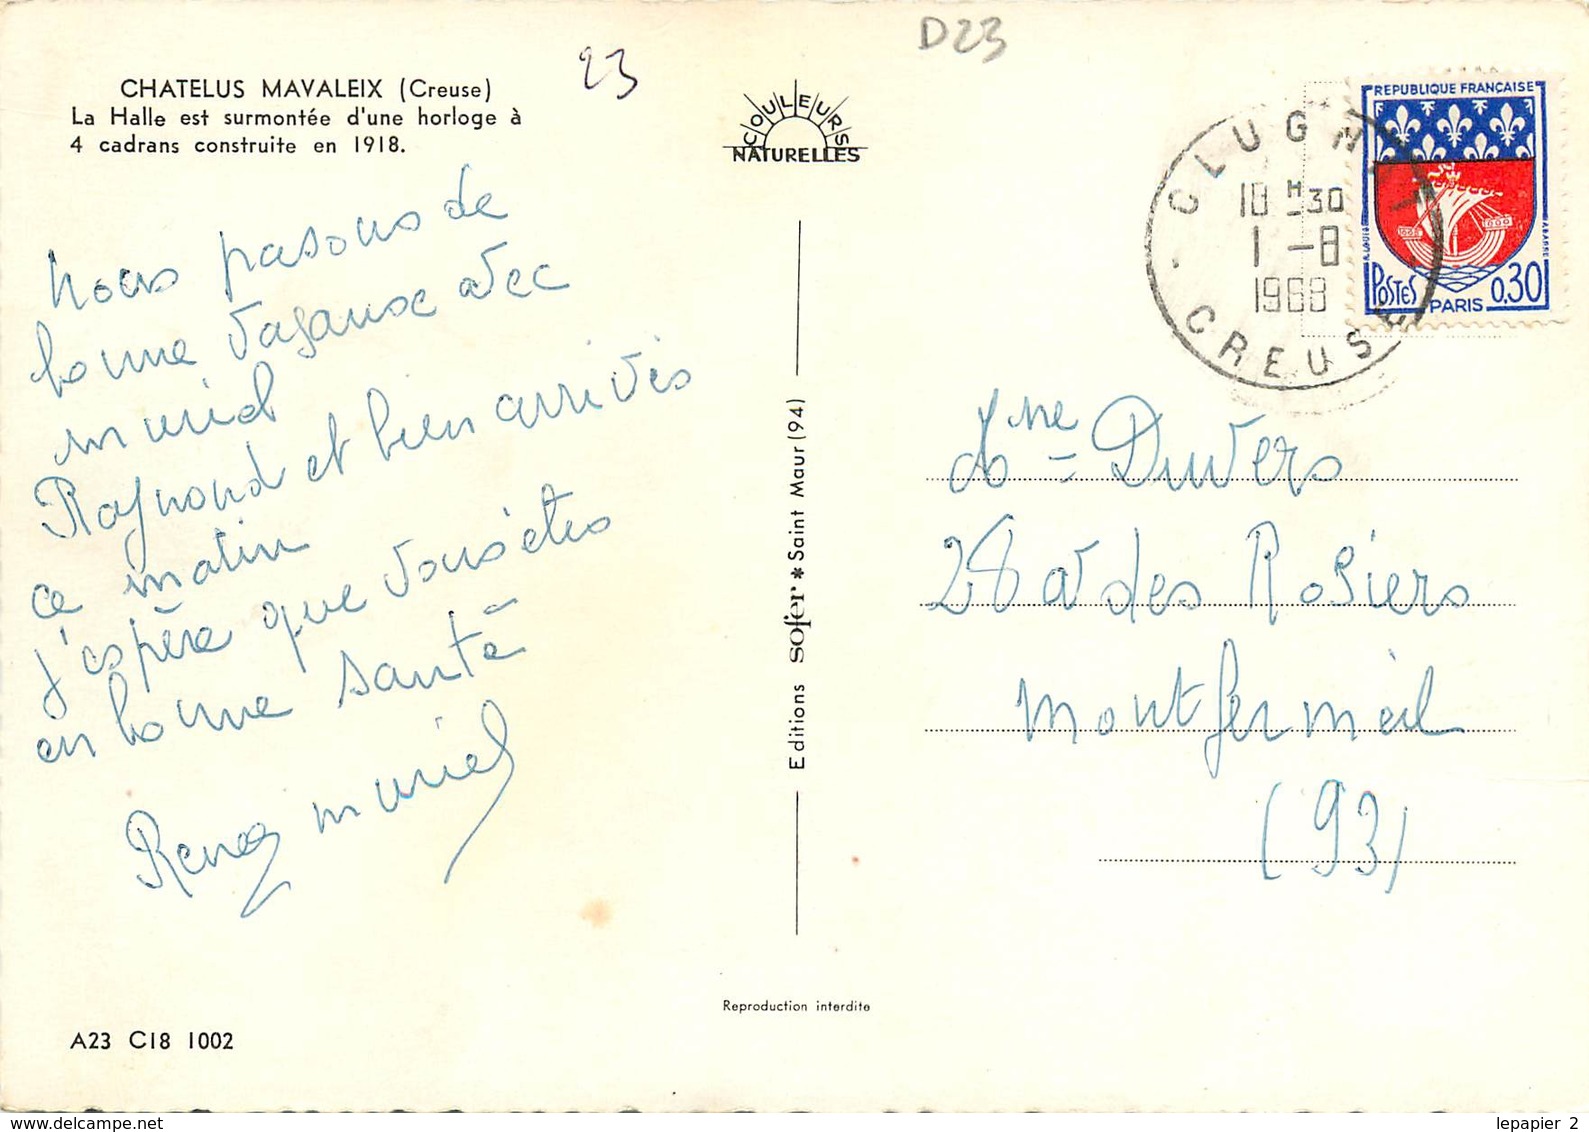 CHATELUS MAVALEIX (Creuse)
La Halle est surmontée d'une horloge à
4 cadrans construite en 1918.
23
D23
COULEURS
NATURELLES
nous pasons de
bonne vaganse avec
muriel
Raynond et bien arrivés
ce matin
j'espère que vous êtes
en bonne santé
René muriel
A23 C18 1002
Editions sofer * Saint Maur (94)
Reproduction interdite
CLUGNAT
18 H 30
1 -8
1968
CREUSE
REPUBLIQUE FRANÇAISE
POSTES
PARIS
0,30
Mme Duvers
28 av des Rosiers
Montfermeil
(93)
lepapier 2